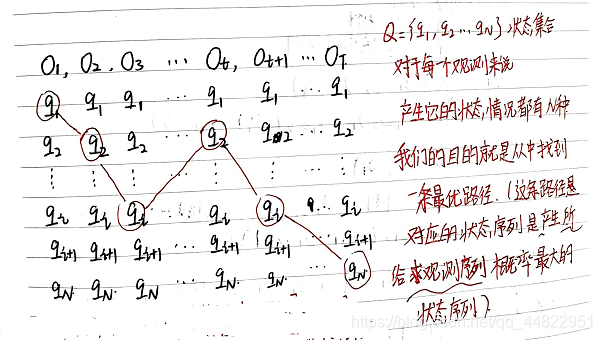 O1, O2, O3 ··· Ot, Ot+1 ··· OT
q1 q1 q1 ··· q1 q1 ··· q1
q2 q2 q2 ··· q2 q2 ··· q2
⋮ ⋮ ⋮ ⋮ ⋮ ⋮
qi qi qi ··· qi qi ··· qi
qi+1 qi+1 qi+1 ··· qi+1 qi+1 ··· qi+1
qN qN qN ··· qN qN ··· qN
Q={q1, q2 ··· qN} 状态集合
对于每个观测来说
产生它的状态情况都有N种
我们的目的就是从中找到
一条最优路径.(这条路径是
对应的状态序列是产生所
给观测序列概率最大的
状态序列)